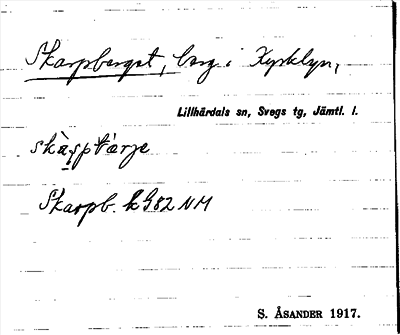 Skarpberget, berg i Kyrkbyn,
Lillhärdals sn, Svegs tg, Jämtl. l.
Skarpb. k G82 NM
S. ÅSANDER 1917.